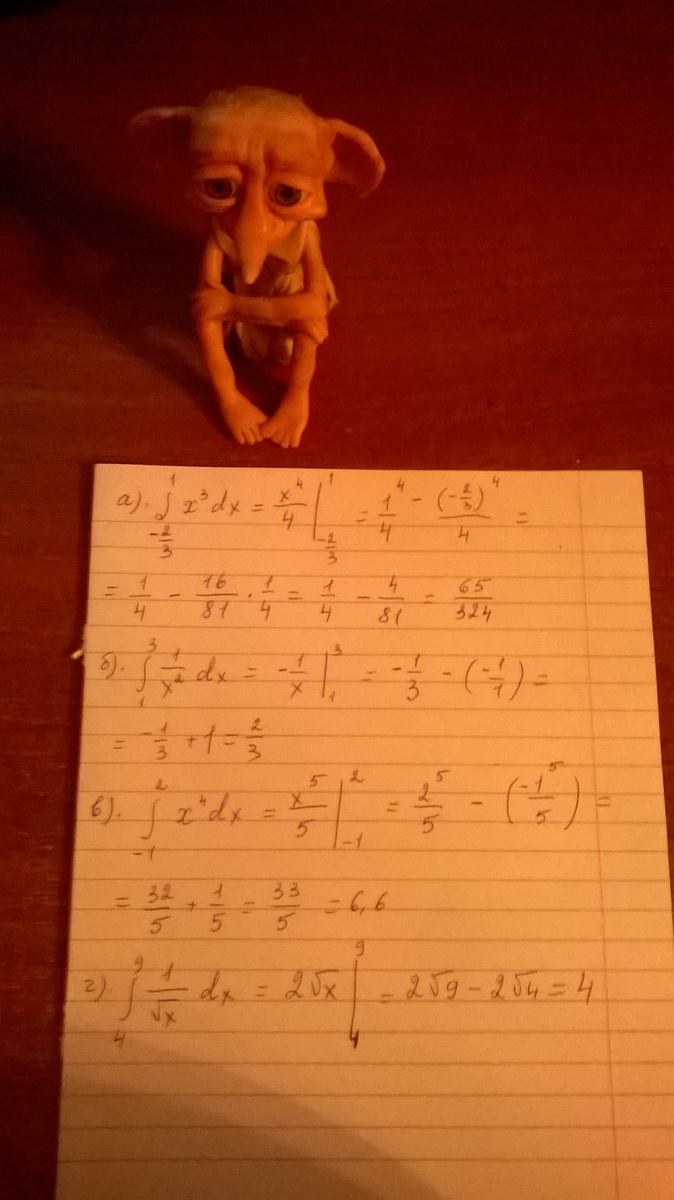 а). ∫_{-2/3}^{1} x³ dx = x⁴/4 |_{-2/3}^{1} = 1⁴/4 - (-2/3)⁴/4 =
= 1/4 - 16/81 · 1/4 = 1/4 - 4/81 = 65/324
б). ∫_{1}^{3} 1/x² dx = -1/x |_{1}^{3} = -1/3 - (-1/1) =
= -1/3 + 1 = 2/3
в). ∫_{-1}^{2} x⁴ dx = x⁵/5 |_{-1}^{2} = 2⁵/5 - (-1⁵/5) =
= 32/5 + 1/5 = 33/5 = 6,6
г). ∫_{4}^{9} 1/√x dx = 2√x |_{4}^{9} = 2√9 - 2√4 = 4